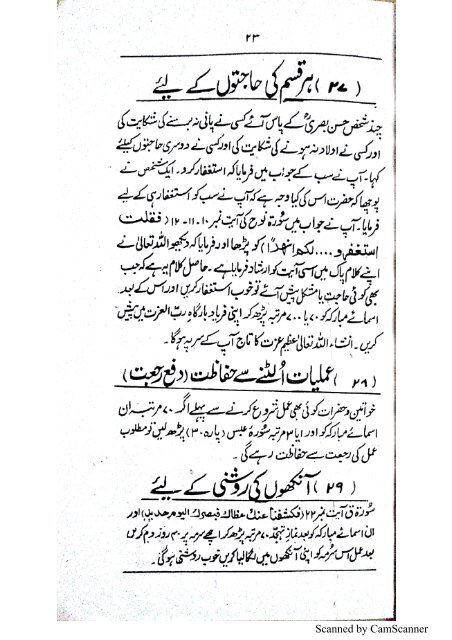 ۲۳
(۲۷) ہر قسم کی حاجتوں کے لئے
چند شخص حسن بصریؒ کے پاس آئے کسی نے پانی نہ برسنے کی شکایت کی
اور کسی نے اولاد نہ ہونے کی شکایت کی اور کسی نے دوسری حاجتوں کیلئے
کہا۔ آپ نے سب کے جواب میں فرمایا کہ استغفار کرو۔ ایک شخص نے
پوچھا کہ حضرت اس کی کیا وجہ ہے کہ آپ نے سب کو استغفار ہی کے لیے
فرمایا۔ آپ نے جواب میں سورۃ نوح کی آیت نمبر ۱۰۔۱۱۔۱۲ (فقلت
استغفرو .... لكم انهٰرا) کو پڑھا اور فرمایا کہ دیکھو اللہ تعالیٰ نے
اپنے کلام پاک میں اسی آیت کو ارشاد فرمایا ہے۔ حاصل کلام یہ ہے کہ جب
بھی کوئی حاجت یا مشکل پیش آئے تو خوب استغفار کریں اور اس کے بعد
اسمائے مبارکہ کو ۷۰ یا ۷۰۰ مرتبہ پڑھ کر اپنی فریاد بارگاہ ربّ العزت میں پیش
کریں۔ انشاء اللہ تعالیٰ عظیم عزت کا تاج آپ کے سر پہ ہوگا۔
(۲۸) عملیات اُلٹنے سے حفاظت (دفع رجعت)
خواتین و حضرات کوئی بھی عمل شروع کرنے سے پہلے اگر ۷۰ مرتبہ ان
اسمائے مبارکہ کو اور ۱ یا ۳ مرتبہ سورۃ عبس (پارہ ۳۰) پڑھ لیں تو مطلوب
عمل کی رجعت سے حفاظت رہے گی۔
(۲۹) آنکھوں کی روشنی کے لئے
سورۃ ق آیت نمبر ۲۲ (فكشفنا عنك غطاءك فبصرك اليوم حديد) اور
ان اسمائے مبارکہ کو بعد نماز تہجد ۷۰ مرتبہ پڑھ کر اچھے سرمہ پر ۴۰ روز دم کریں
بعد عمل اس سُرمہ کو اپنی آنکھوں میں لگا لیا کریں خوب روشنی ہوگی۔
Scanned by CamScanner